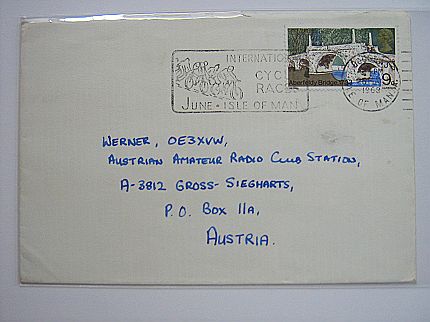 INTERNATIONAL
CYCLE
RACES
JUNE • ISLE OF MAN
Aberfeldy Bridge
9
1968
OF MAN
WERNER, OE3XVW,
AUSTRIAN AMATEUR RADIO CLUB STATION,
A-3812 GROSS-SIEGHARTS,
P.O. BOX 11A,
AUSTRIA.